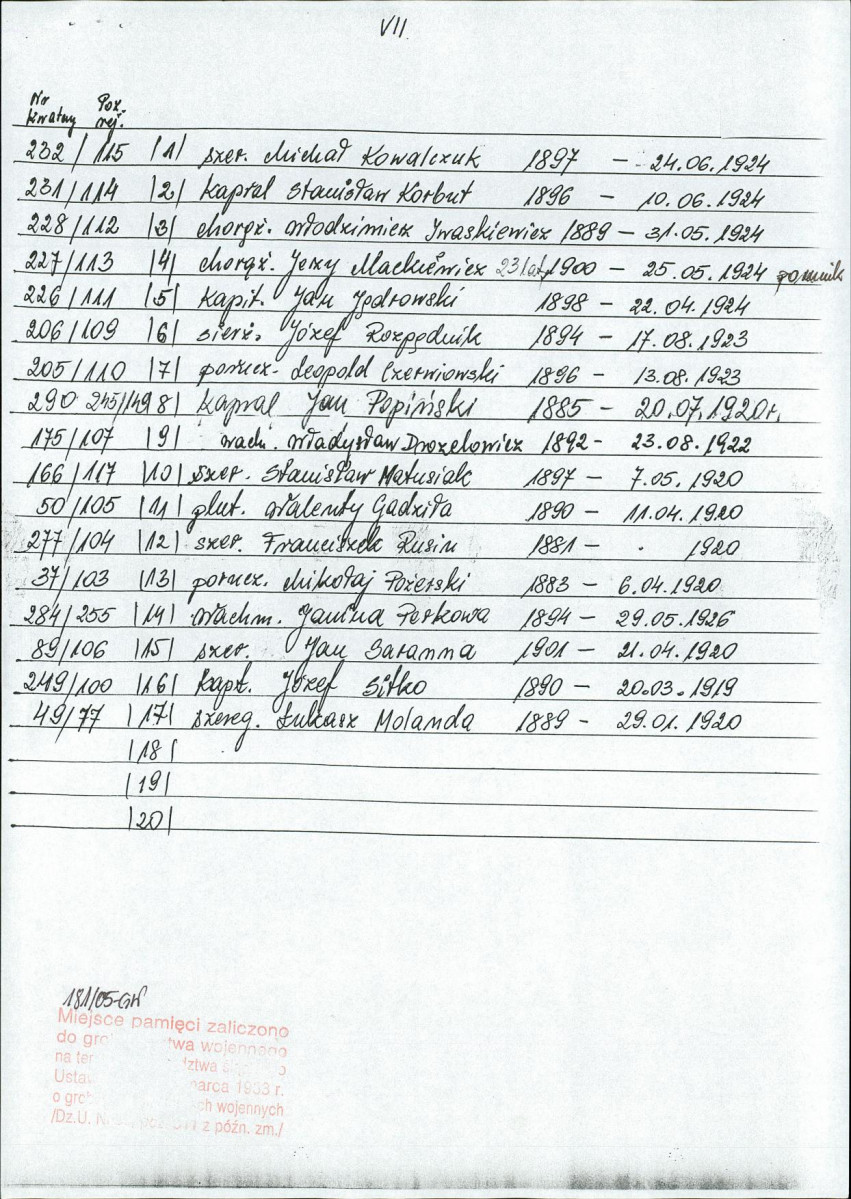 VII.
Nr kwatery Poz. rej.
232/115 |1| szer. Michał Kowalczuk 1897 – 24.06.1924
231/114 |2| kapral Stanisław Korbut 1896 – 10.06.1924
228/112 |3| chorąż. Włodzimierz Iwaskiewicz 1889 – 31.05.1924
227/113 |4| chorąż. Jerzy Mackiewicz 23 lat, 1900 – 25.05.1924 pomnik
226/111 |5| Kapit. Jan Jędrowski 1898 – 22.04.1924
206/109 |6| sierż. Józef Rozpędnik 1894 – 17.08.1923
205/110 |7| porucz. Leopold Czerniowski 1896 – 13.08.1923
290 245/149 8| Kapral Jan Popiński 1885 – 20.07.1920r.
175/107 |9| wach. Władysław Drozelowicz 1892 – 23.08.1922
166/117 |10| szer. Stanisław Matusiak 1897 – 7.05.1920
50/105 |11| plut. Walenty Gadziła 1890 – 11.04.1920
277/104 |12| szer. Franciszek Rusin 1881 – . 1920
37/103 |13| porucz. Mikołaj Pożerski 1883 – 6.04.1920
284/255 |14| Wachm. Janina Perkowa 1894 – 29.05.1926
89/106 |15| szer. Jan Saranna 1901 – 21.04.1920
249/100 |16| Kapt. Józef Sitko 1890 – 20.03.1919
49/77 |17| szereg. Łukasz Molanda 1889 – 29.01.1920
|18|
|19|
|20|
181/05-GW
Miejsce pamięci zaliczono
do wojennego
na
1933 r.
o wojennych
/Dz.U. z późn. zm./